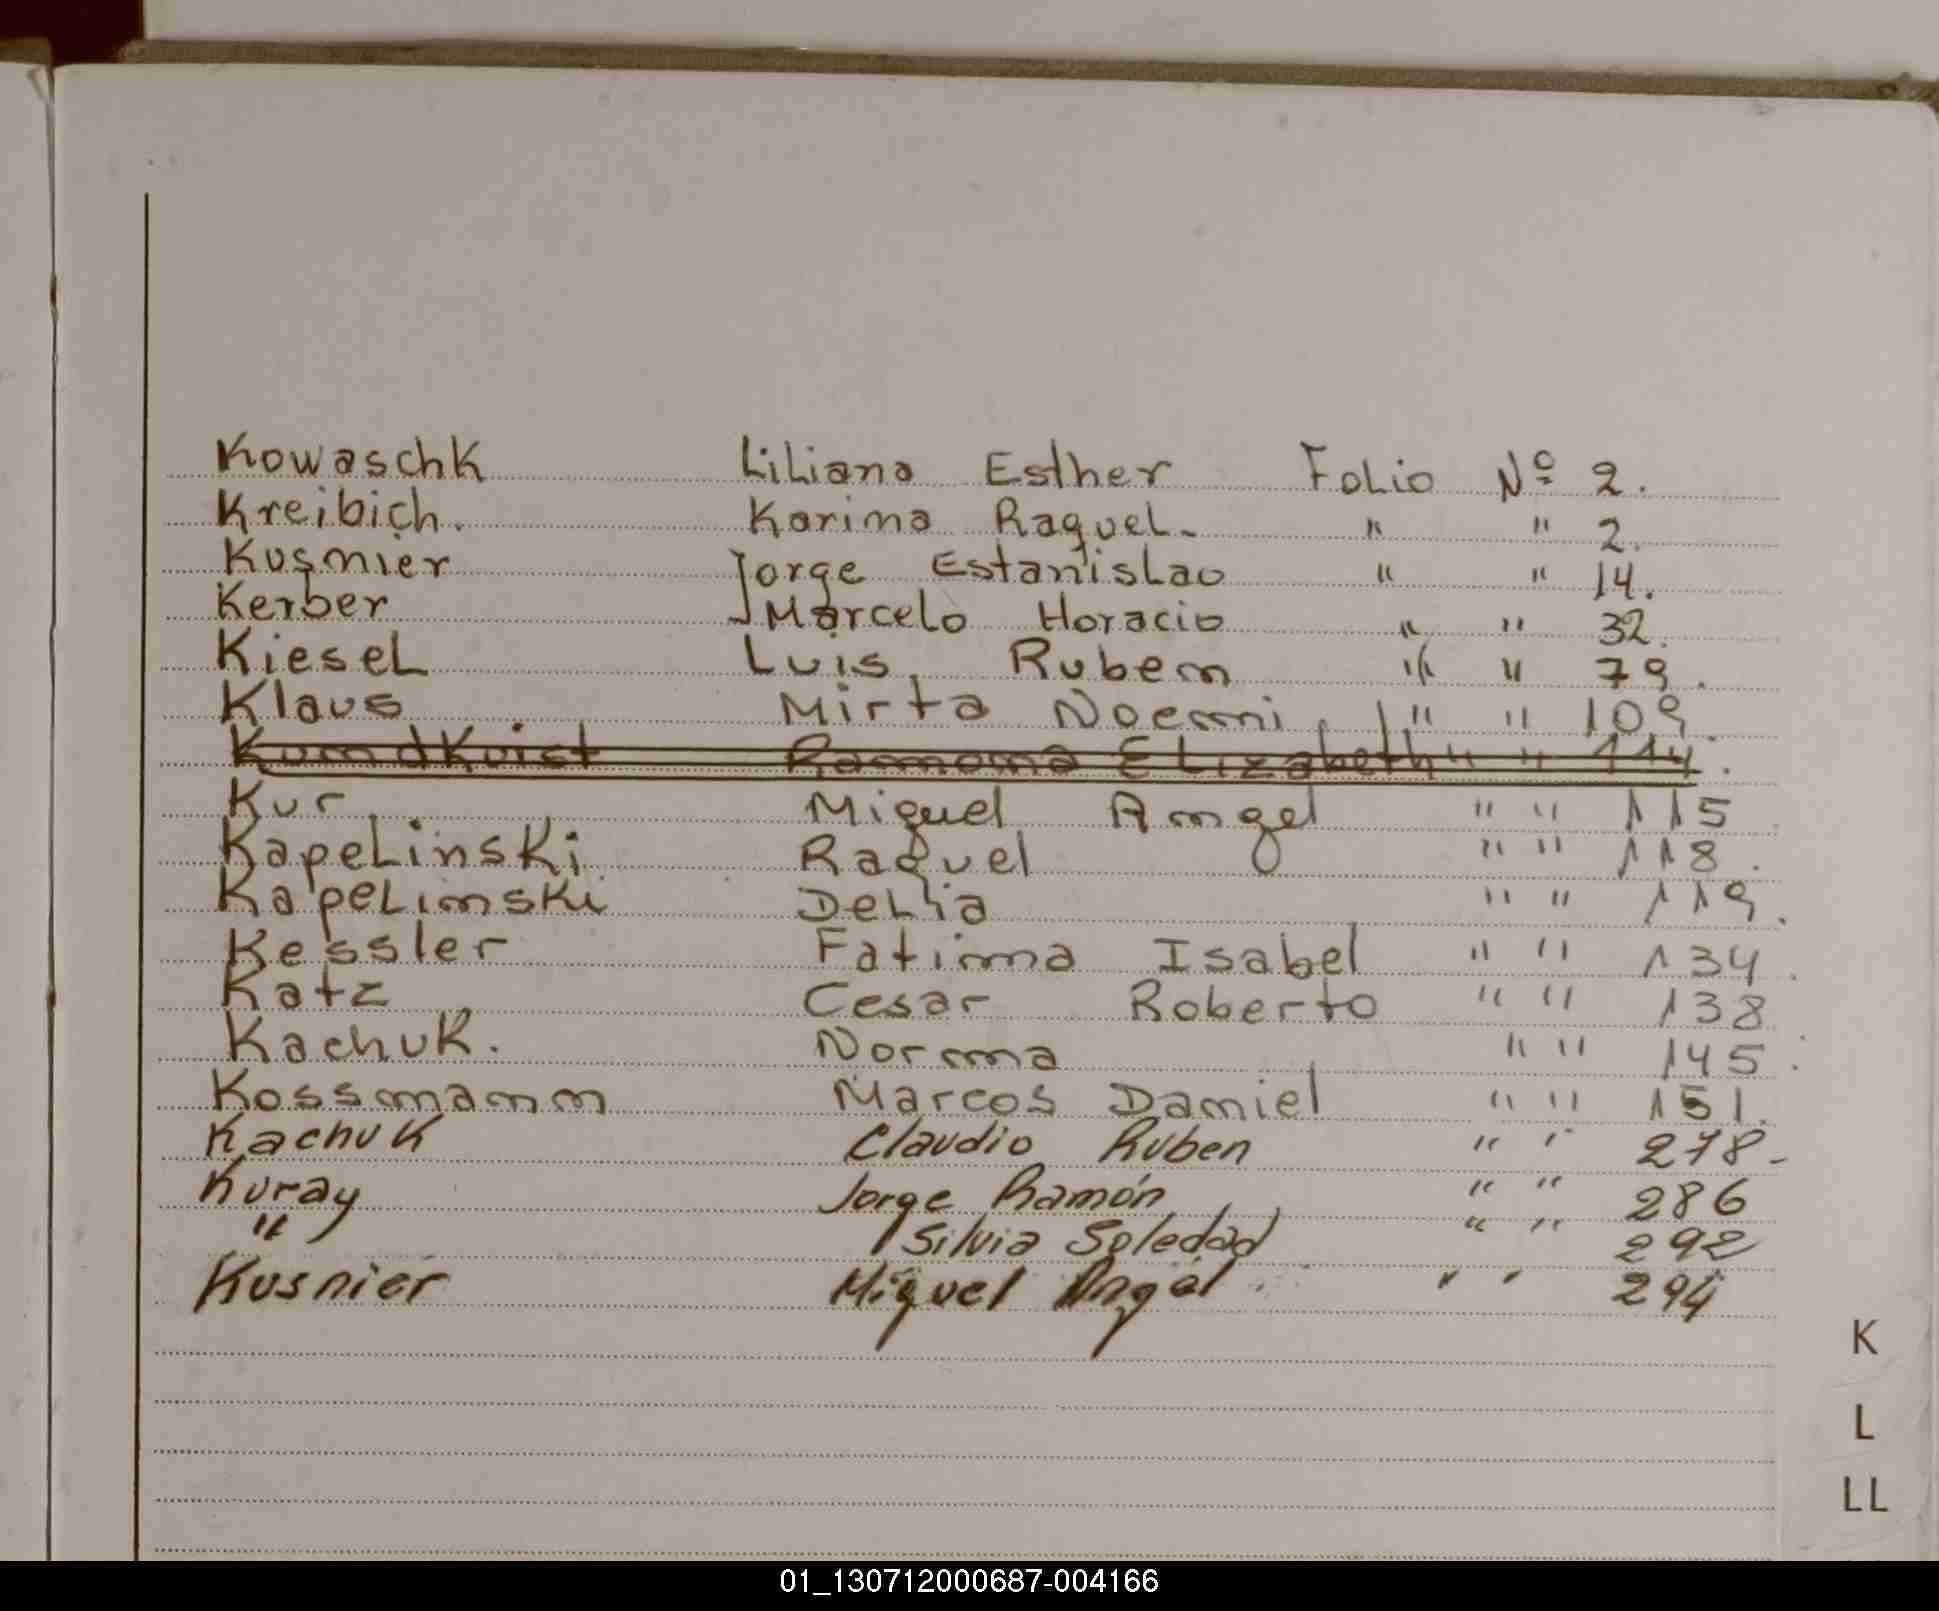 Kowaschk Liliana Esther Folio Nº 2.
Kreibich. Karina Raquel. " " 2.
Kusnier Jorge Estanislao " " 14.
Kerber Marcelo Horacio " " 32.
Kiesel Luis Ruben " " 79.
Klaus Mirta Noemi " " 109.
Kundkvist Ramona Elizabeth " " 114.
Kur Miguel Angel " " 115
Kapelinski Raquel " " 118.
Kapelinski Delia " " 119.
Kessler Fatima Isabel " " 134.
Katz Cesar Roberto " " 138
Kachuk. Norma " " 145.
Kossmann Marcos Daniel " " 151.
Kachuk Claudio Ruben " " 278-
Kuray Jorge Ramón " " 286
" Silvia Soledad " " 292
Kusnier Miguel Angel " " 294
K
L
LL
01_130712000687-004166